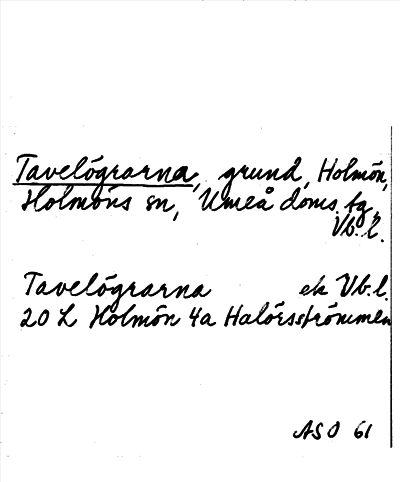 Tavelögrarna, grund, Holmön,
Holmöns sn, Umeå doms. tg,
Vb. l.
Tavelögrarna ek Vb. l.
20 L Holmön 4a Halörsströmmen
ASO 61